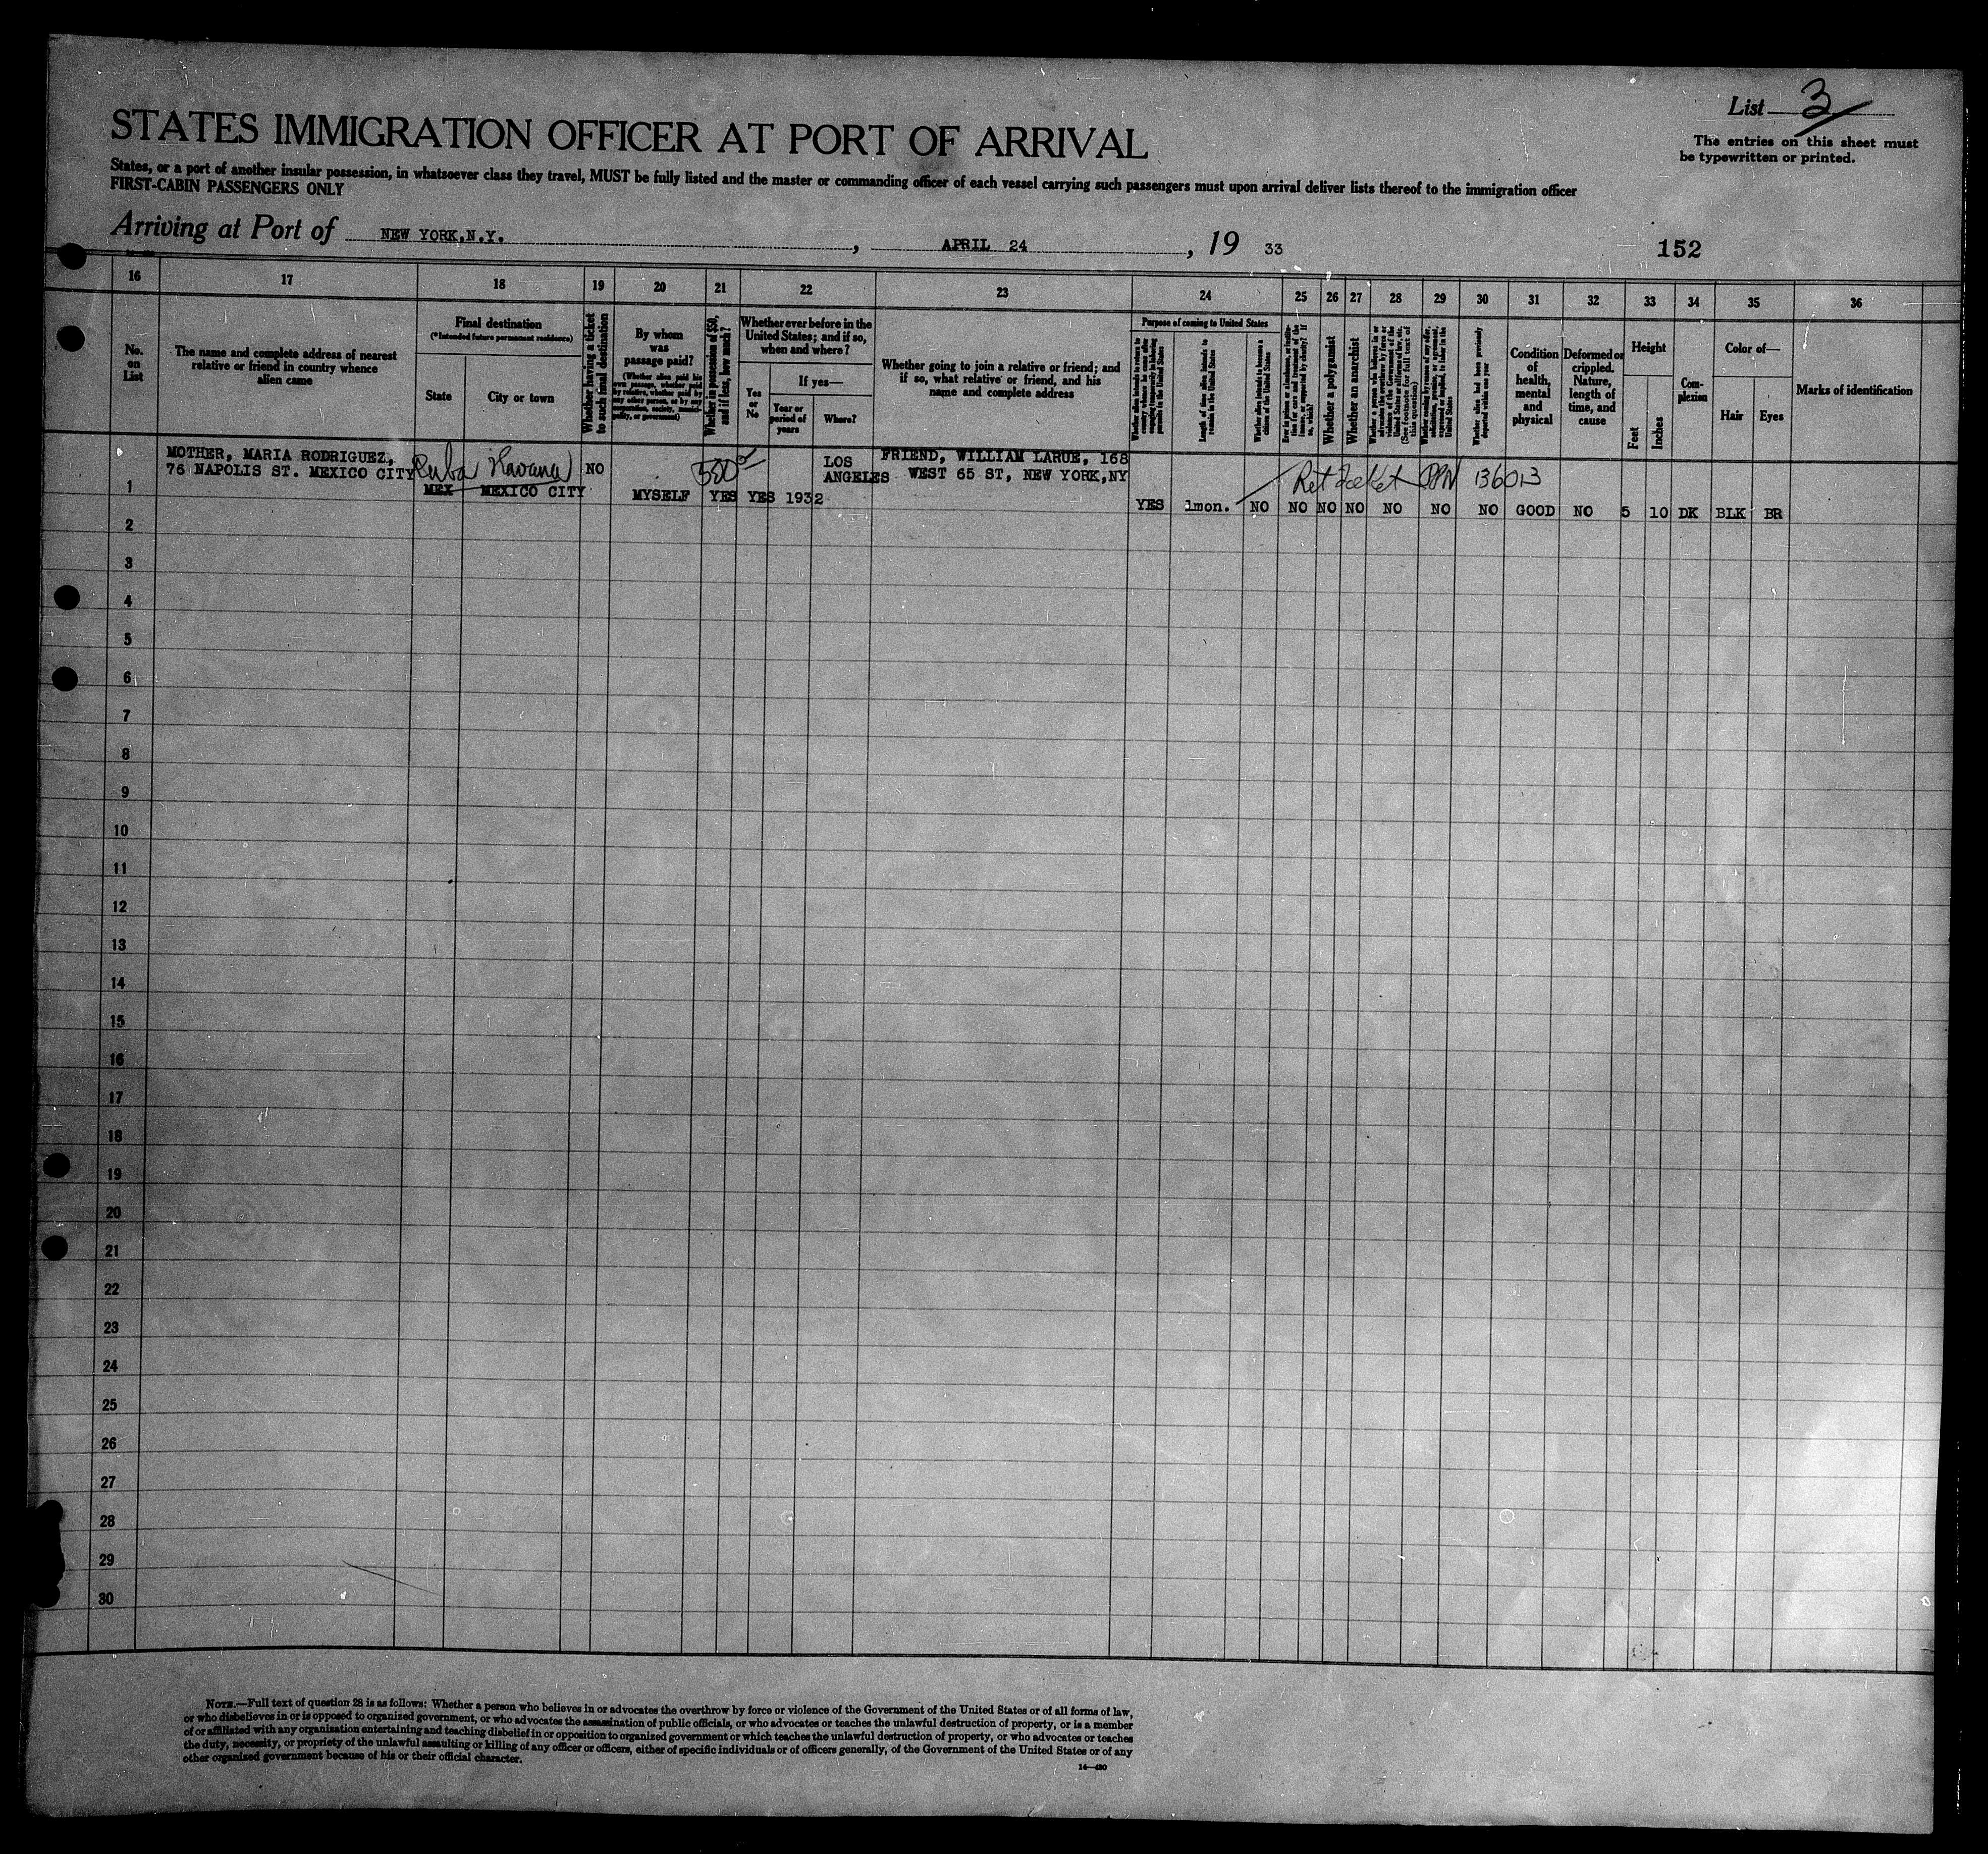 List 3
The entries on this sheet must
be typewritten or printed.
STATES IMMIGRATION OFFICER AT PORT OF ARRIVAL
States, or a port of another insular possession, in whatsoever class they travel, MUST be fully listed and the master or commanding officer of each vessel carrying such passengers must upon arrival deliver lists thereof to the immigration officer
FIRST-CABIN PASSENGERS ONLY
Arriving at Port of NEW YORK,N.Y. , APRIL 24 , 19 33
152
16 17 18 19 20 21 22 23 24 25 26 27 28 29 30 31 32 33 34 35 36
No.
on
List
The name and complete address of nearest
relative or friend in country whence
alien came
Final destination
(*Intended future permanent residence)
State
City or town
Whether having a ticket
to such final destination
By whom
was
passage paid?
(Whether alien paid his
own passage, whether paid
by relative, whether paid by
any other person, or by any
corporation, society, munici-
pality, or government)
Whether in possession of $50,
and if less, how much?
Whether ever before in the
United States; and if so,
when and where?
Yes
or
No
If yes—
Year or
period of
years
Where?
Whether going to join a relative or friend; and
if so, what relative or friend, and his
name and complete address
Purpose of coming to United States
Length of time alien intends to
remain in the United States
Whether alien intends to become a
citizen of the United States
Whether a polygamist
Whether an anarchist
Whether alien had been previously
deported within one year
Condition
of
health,
mental
and
physical
Deformed or
crippled.
Nature,
length of
time, and
cause
Height
Feet
Inches
Com-
plexion
Color of—
Hair
Eyes
Marks of identification
MOTHER, MARIA RODRIGUEZ,
76 NAPOLIS ST. MEXICO CITY
Cuba Havana
MEX MEXICO CITY
NO
MYSELF
YES
YES 1932
LOS
ANGELES
FRIEND, WILLIAM LARUE, 168
WEST 65 ST, NEW YORK,NY
136013
YES 1mon. NO NO NO NO NO NO NO GOOD NO 5 10 DK BLK BR
1
2
3
4
5
6
7
8
9
10
11
12
13
14
15
16
17
18
19
20
21
22
23
24
25
26
27
28
29
30
NOTE.—Full text of question 28 is as follows: Whether a person who believes in or advocates the overthrow by force or violence of the Government of the United States or of all forms of law,
or who disbelieves in or is opposed to organized government, or who advocates the assassination of public officials, or who advocates or teaches the unlawful destruction of property, or is a member
of or affiliated with any organization entertaining and teaching disbelief in or opposition to organized government or which teaches the unlawful destruction of property, or who advocates or teaches
the duty, necessity, or propriety of the unlawful assaulting or killing of any officer or officers, either of specific individuals or of officers generally, of the Government of the United States or of any
other organized government because of his or their official character.
14—480